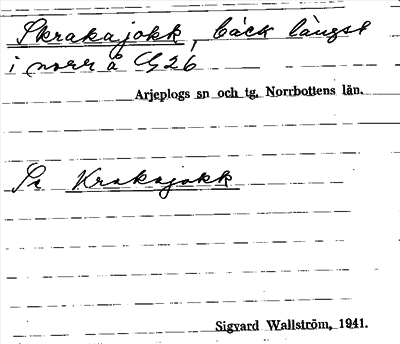 Skrakajokk, bäck längst
i norr å G26
Arjeplogs sn och tg, Norrbottens län.
Se Krakajokk
Sigvard Wallström, 1941.